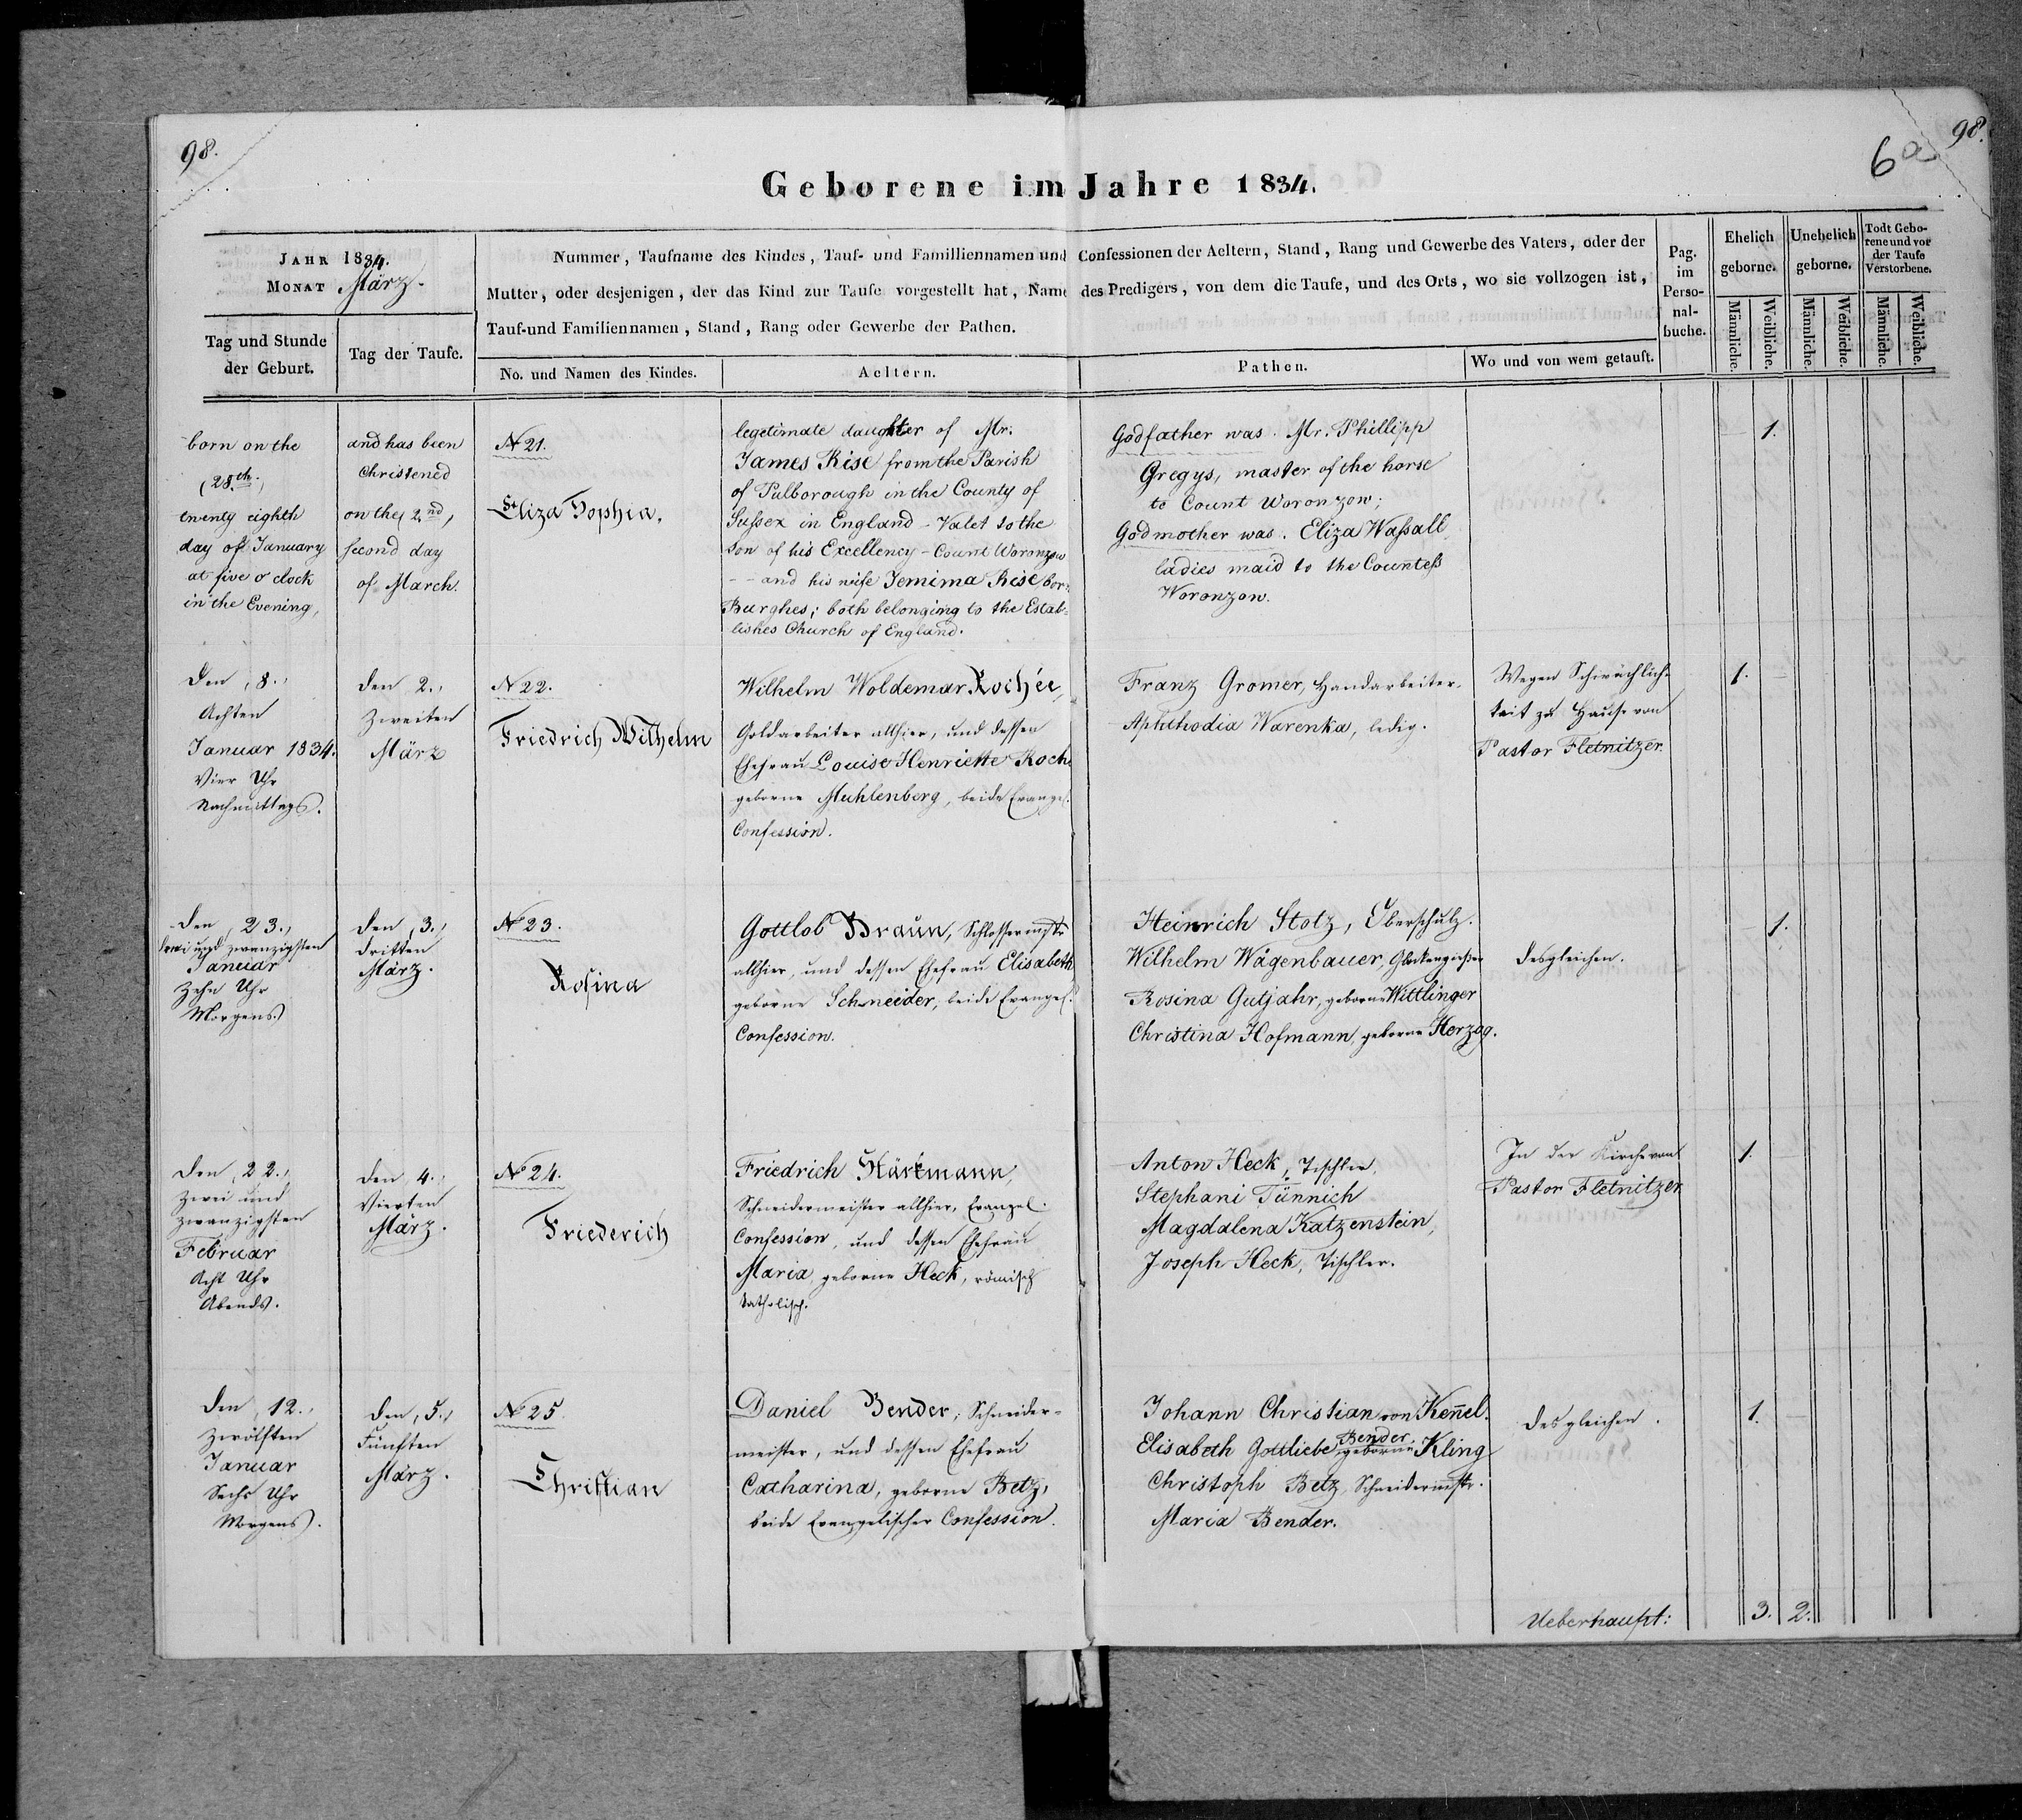 98.
98.
6a
Geborene im Jahre 1834.
JAHR 1834.
MONAT März.
Tag und Stunde
der Geburt.
Tag der Taufe.
Nummer, Taufname des Kindes, Tauf- und Familliennamen und Confessionen der Aeltern, Stand, Rang und Gewerbe des Vaters, oder der
Mutter, oder desjenigen, der das Kind zur Taufe vorgestellt hat, Name des Predigers, von dem die Taufe, und des Orts, wo sie vollzogen ist,
Tauf-und Familiennamen, Stand, Rang oder Gewerbe der Pathen.
No. und Namen des Kindes.
Aeltern.
Pathen.
Wo und von wem getauft.
Pag.
im
Perso-
nal-
buche.
Ehelich
geborne.
Unehelich
geborne.
Todt Gebo-
rene und vor
der Taufe
Verstorbene.
Männliche.
Weibliche.
Männliche.
Weibliche.
Männliche.
Weibliche.
born on the
(28th.)
twenty eighth
day of January
at five o clock
in the Evening,
and has been
Christened
on the 2nd,
second day
of March.
N 21.
Eliza Sophia.
legetimate daughter of Mr.
James Rise from the Parish
of Pulborough in the County of
Sussex in England - Valet to the
son of his Excellency - Count Woronzow
-- and his wife Jemima Rise bor:
Burghes; both belonging to the Estab=
lishes Church of England.
Godfather was. Mr. Phillipp
Gregys, master of the horse
to Count Woronzow;
Godmother was. Eliza Wassall
ladies maid to the Countess
Woronzow.
1.
Den 8.,
Achten
Januar 1834.
Vier Uhr
Nachmittags.
Den 2.,
Zweiten
März
N 22.
Friedrich Wilhelm
Wilhelm Woldemar Rochée,
Goldarbeiter allhier, und dessen
Ehefrau Louise Henriette Roch
geborne Muhlenberg, beide Evangel.
Confession.
Franz Gromer, Handarbeiter.
Aphthodia Warenka, ledig.
Wegen Schwächlich-
keit zu Hause von
Pastor Fletnitzer.
1.
Den 23.,
drei und zwanzigsten
Januar
Zehn Uhr
Morgens.
Den 3.,
Dritten
März.
N 23.
Rosina
Gottlob Braun, Schlossermstr
allhier, und dessen Ehefrau Elisabeth
geborne Schneider, beide Evangel.
Confession.
Heinrich Stotz, Oberschulz.
Wilhelm Wägenbauer, Glockengießer
Rosina Gutjahr, geborne Wittlinger
Christina Hofmann, geborne Herzog.
Desgleichen.
1.
Den 22.,
Zwei und
zwanzigsten
Februar
Acht Uhr
Abends.
Den 4.,
Vierten
März.
No 24.
Friederich
Friedrich Stärkmann,
Schneidermeister allhier, Evangel.
Confession, und dessen Ehefrau
Maria, geborne Heck, römisch
katholisch.
Anton Heck, Tischler,
Stephani Tännich
Magdalena Katzenstein,
Joseph Heck, Tischler.
In der Kirche von
Pastor Fletnitzer
1.
Den 12.,
Zwölften
Januar
Sechs Uhr
Morgens.
Den 5.,
Fünften
März.
No 25.
Christian
Daniel Bender, Schneider-
meister, und dessen Ehefrau
Catharina, geborne Betz,
beide Evangelischer Confession.
Johann Christian von Kennel.
Elisabeth Gottliebe Bender geborne Kling
Christoph Betz, Schneidermstr.
Maria Bender.
Desgleichen.
1.
Ueberhaupt:
3. 2.